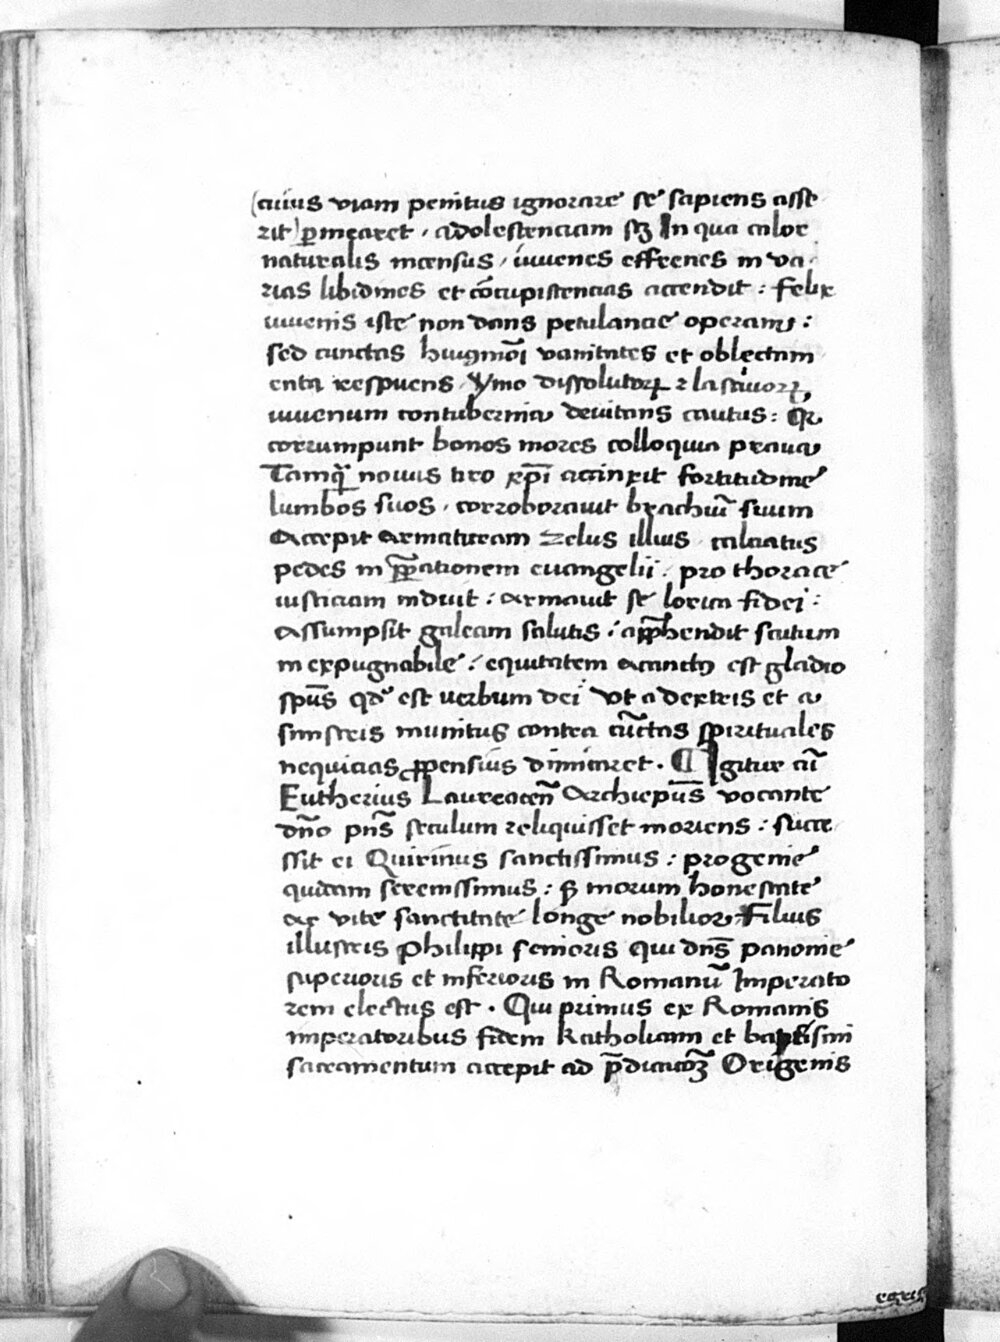 (cuius viam penitus ignorare se sapiens asse
rit) ꝑmearet , adolescenciam sꝫ In qua calor
naturalis incensus / iuuenes effrenes in va
rias libidines et cōcupiscencias accendit : felix
iuuenis iste non dans petulancie operam :
sed cunctas huiꝰmōi vanitates et oblectam
enta respuens / ymo dissolutoꝝ ⁊ lasciuoꝝ,
iuuenum contubernia deuitans cautus : Qꝛ
corrumpunt bonos mores colloquia praua
Tamq̄ nouus tiro xp̄i accinxit fortitudine
lumbos suos , corroborauit brachiū suum
Accepit armaturam zelus illius , calciatus
pedes in p̄ꝑationem euangelii : pro thorace
iusticiam induit : armauit se lorica fidei :
Assumpsit galeam salutis : app̄hendit scutum
in expugnabile : equitatem accinctꝰ est gladio
spūs qd̓ est uerbum dei vt a dextris et a
sinistris munitus contra cūctas spirituales
nequicias ꝓpensius dimicaret . ¶ Igitur cū
Eutherius Laureaceñ Archiep̄us vocante
dn̄o pn̄s seculum reliquisset moriens : succe
ssit ei Quirinus sanctissimus : progenie
quidam serenissimus : sꝫ morum honestate
ac vite sanctitate longe nobilior Filius
illustris Philippi senioris qui dn̄s panonie
superioris et inferioris in Romanū Imperato
rem electus est . Qui primus ex Romanis
imperatoribus fidem katholicam et baptismi
sacramentum accepit ad p̄dicacōꝫ Origenis